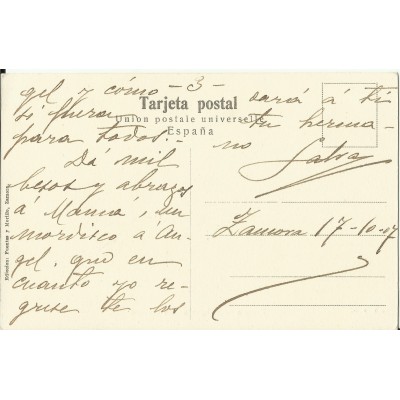 - 3 -
Tarjeta postal
Union postale universelle
España
gel y cómo
si fuera
para todos.
Dá mil
besos y abrazos
á Mamá, un
mordisco á An-
gel. que en
cuanto yo re-
grese te los
dará á ti
tu herma-
no
Zamora 17-10-07